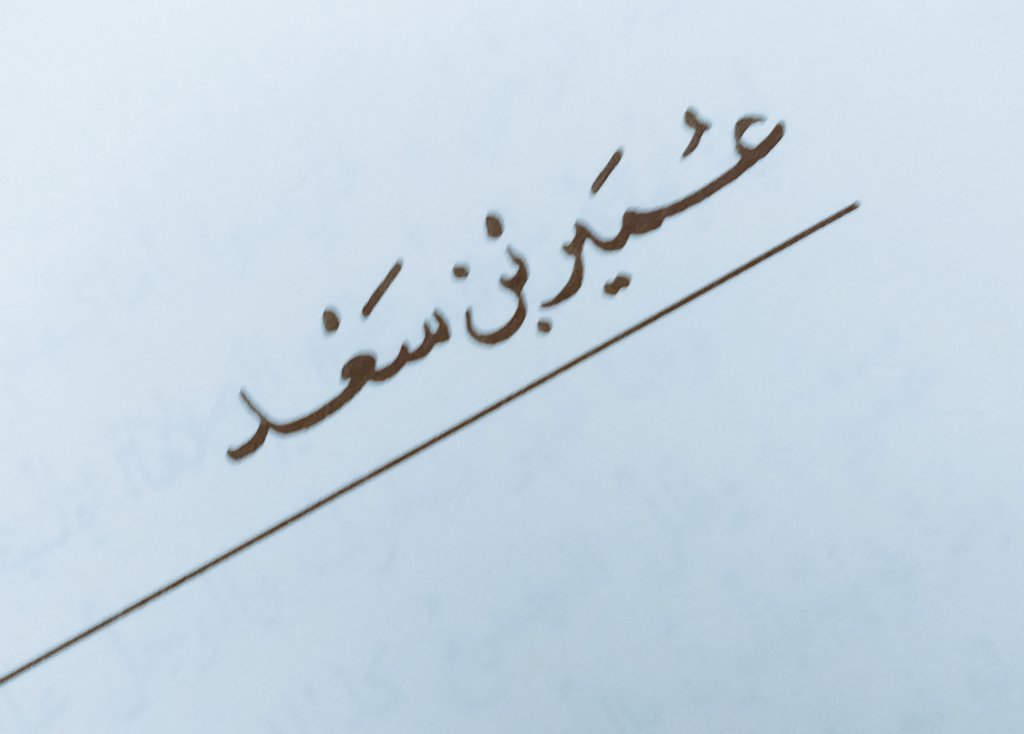 عُمَير بنْ سَعْد